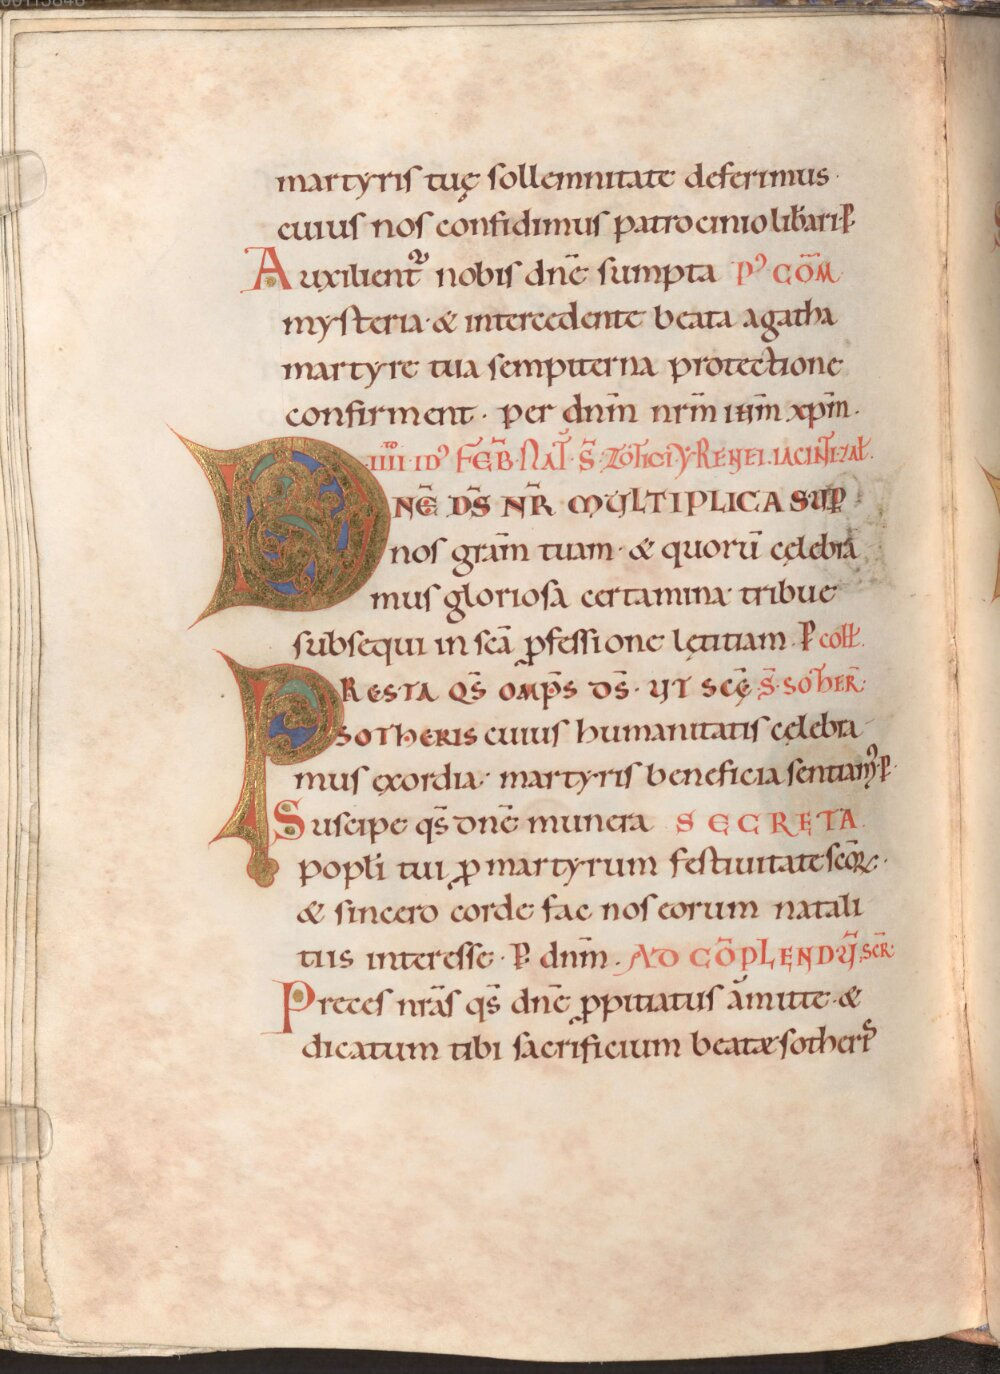 martyris tuę sollemnitate deferimus·
cuius nos confidimus patrocinio lib̄ari·P̱
Auxilient᷑ nobis dnē sumpta P᾽ COM̄
mysteria·& intercedente beata agatha
martyre tua sempiterna protectione
confirment· per dnm̄ nrm̄ ihm̄ xpm̄·
IIII ID᾽ FEB̄·NAT̄·S̄·ZOTICI
DNĒ DS̄ NR̄ MULTIPLICA SUP̱
nos grām tuam·& quorū cęlebra
mus gloriosa certamina tribue
subsequi in scā ꝓfessione lętitiam·P̱ coll̄.
PRESTA QS̄ OMP̄S DS̄·UT SCĘ̄ S̄·SOTHER̄·
SOTHERIS cuius humanitatis cęlebra
mus ęxordia· martyris beneficia sentiam᾽·P̱·
Suscipe qs̄ dnē munera SECRETA
popl̄i tui ꝓ martyrum festiuitate scōꝝ·
& sincero corde fac nos eorum natali
tiis interesse·P̱ dnm̄· AD CŌPLENDŪ, SCR̄·
Preces nrās qs̄ dnē ꝓpitiatus āmitte·&
dicatum tibi sacrificium beatæ sotheris